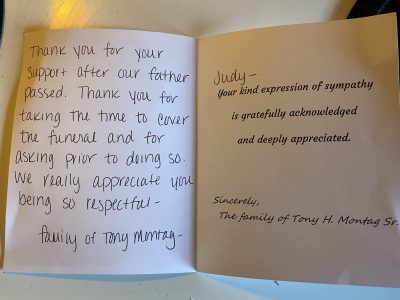 Thank you for your
support after our father
passed. Thank you for
taking the time to cover
the funeral and for
asking prior to doing so.
We really appreciate you
being so respectful-
family of Tony Montag-
Judy-
Your kind expression of sympathy
is gratefully acknowledged
and deeply appreciated.
Sincerely,
The family of Tony H. Montag Sr.